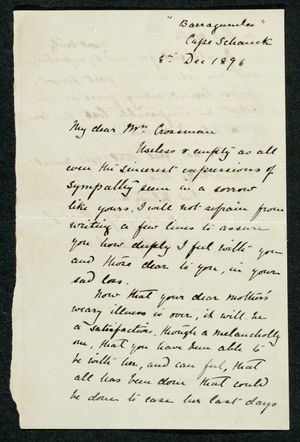 "Barragunda"
Cape Schanck
8th Dec 1896
My dear Mrs Crossman
Useless & empty as all
even the sincerest expressions of
sympathy seem in a sorrow
like yours, I will not refrain from
writing a few lines to assure
you how deeply I feel with you
and those dear to you, in your
sad loss.
Now that your dear mother's
weary illness is over, it will be
a satisfaction, though a melancholy
one, that you have been able to
be with her, and can feel, that
all has been done that could
be done to ease her last days